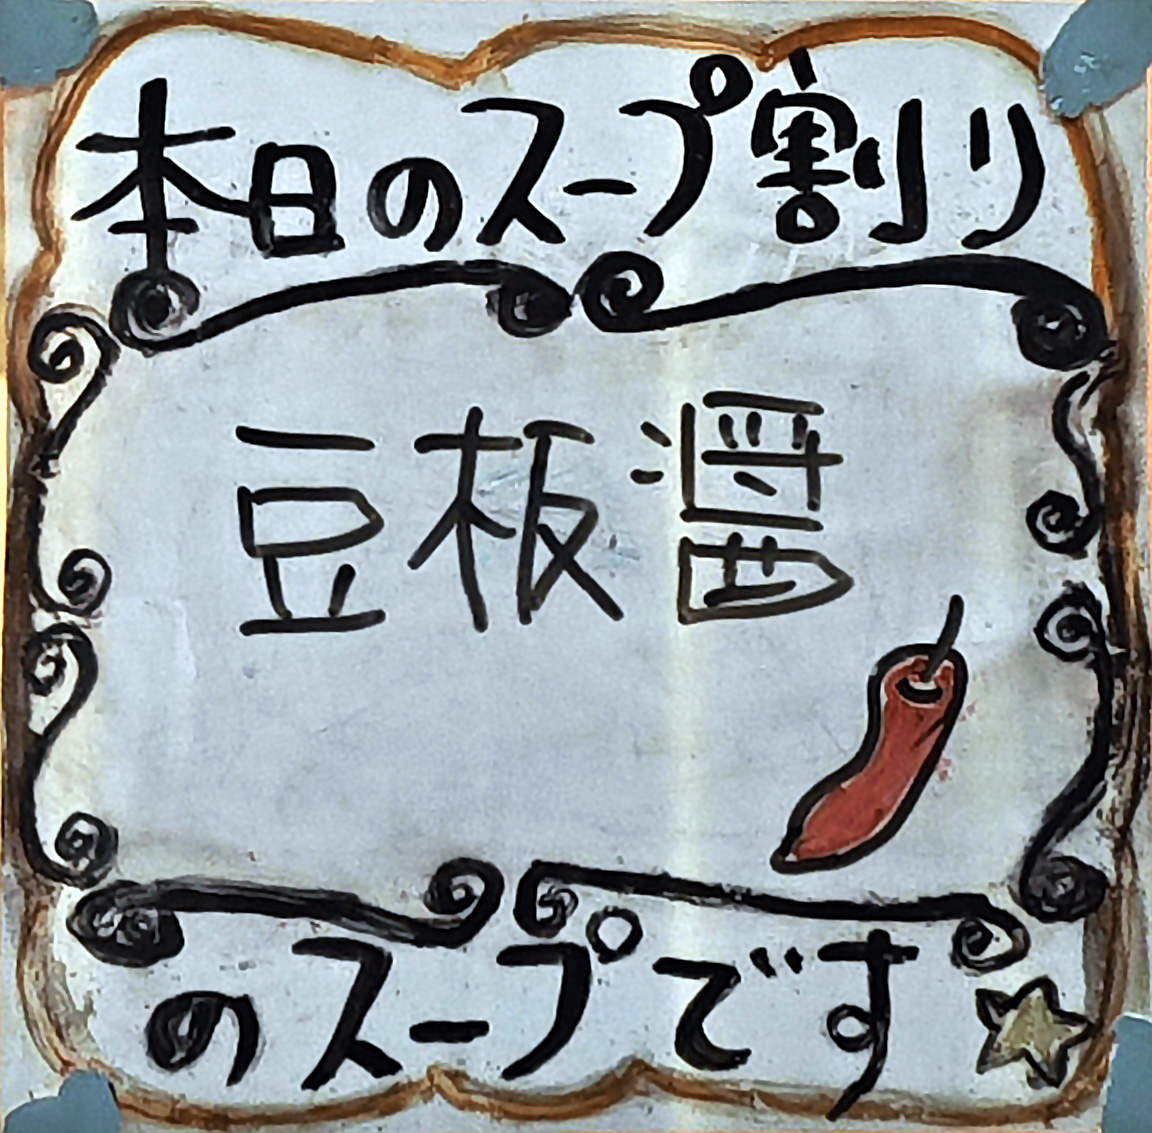 本日のスープ割り
豆板醤
のスープです